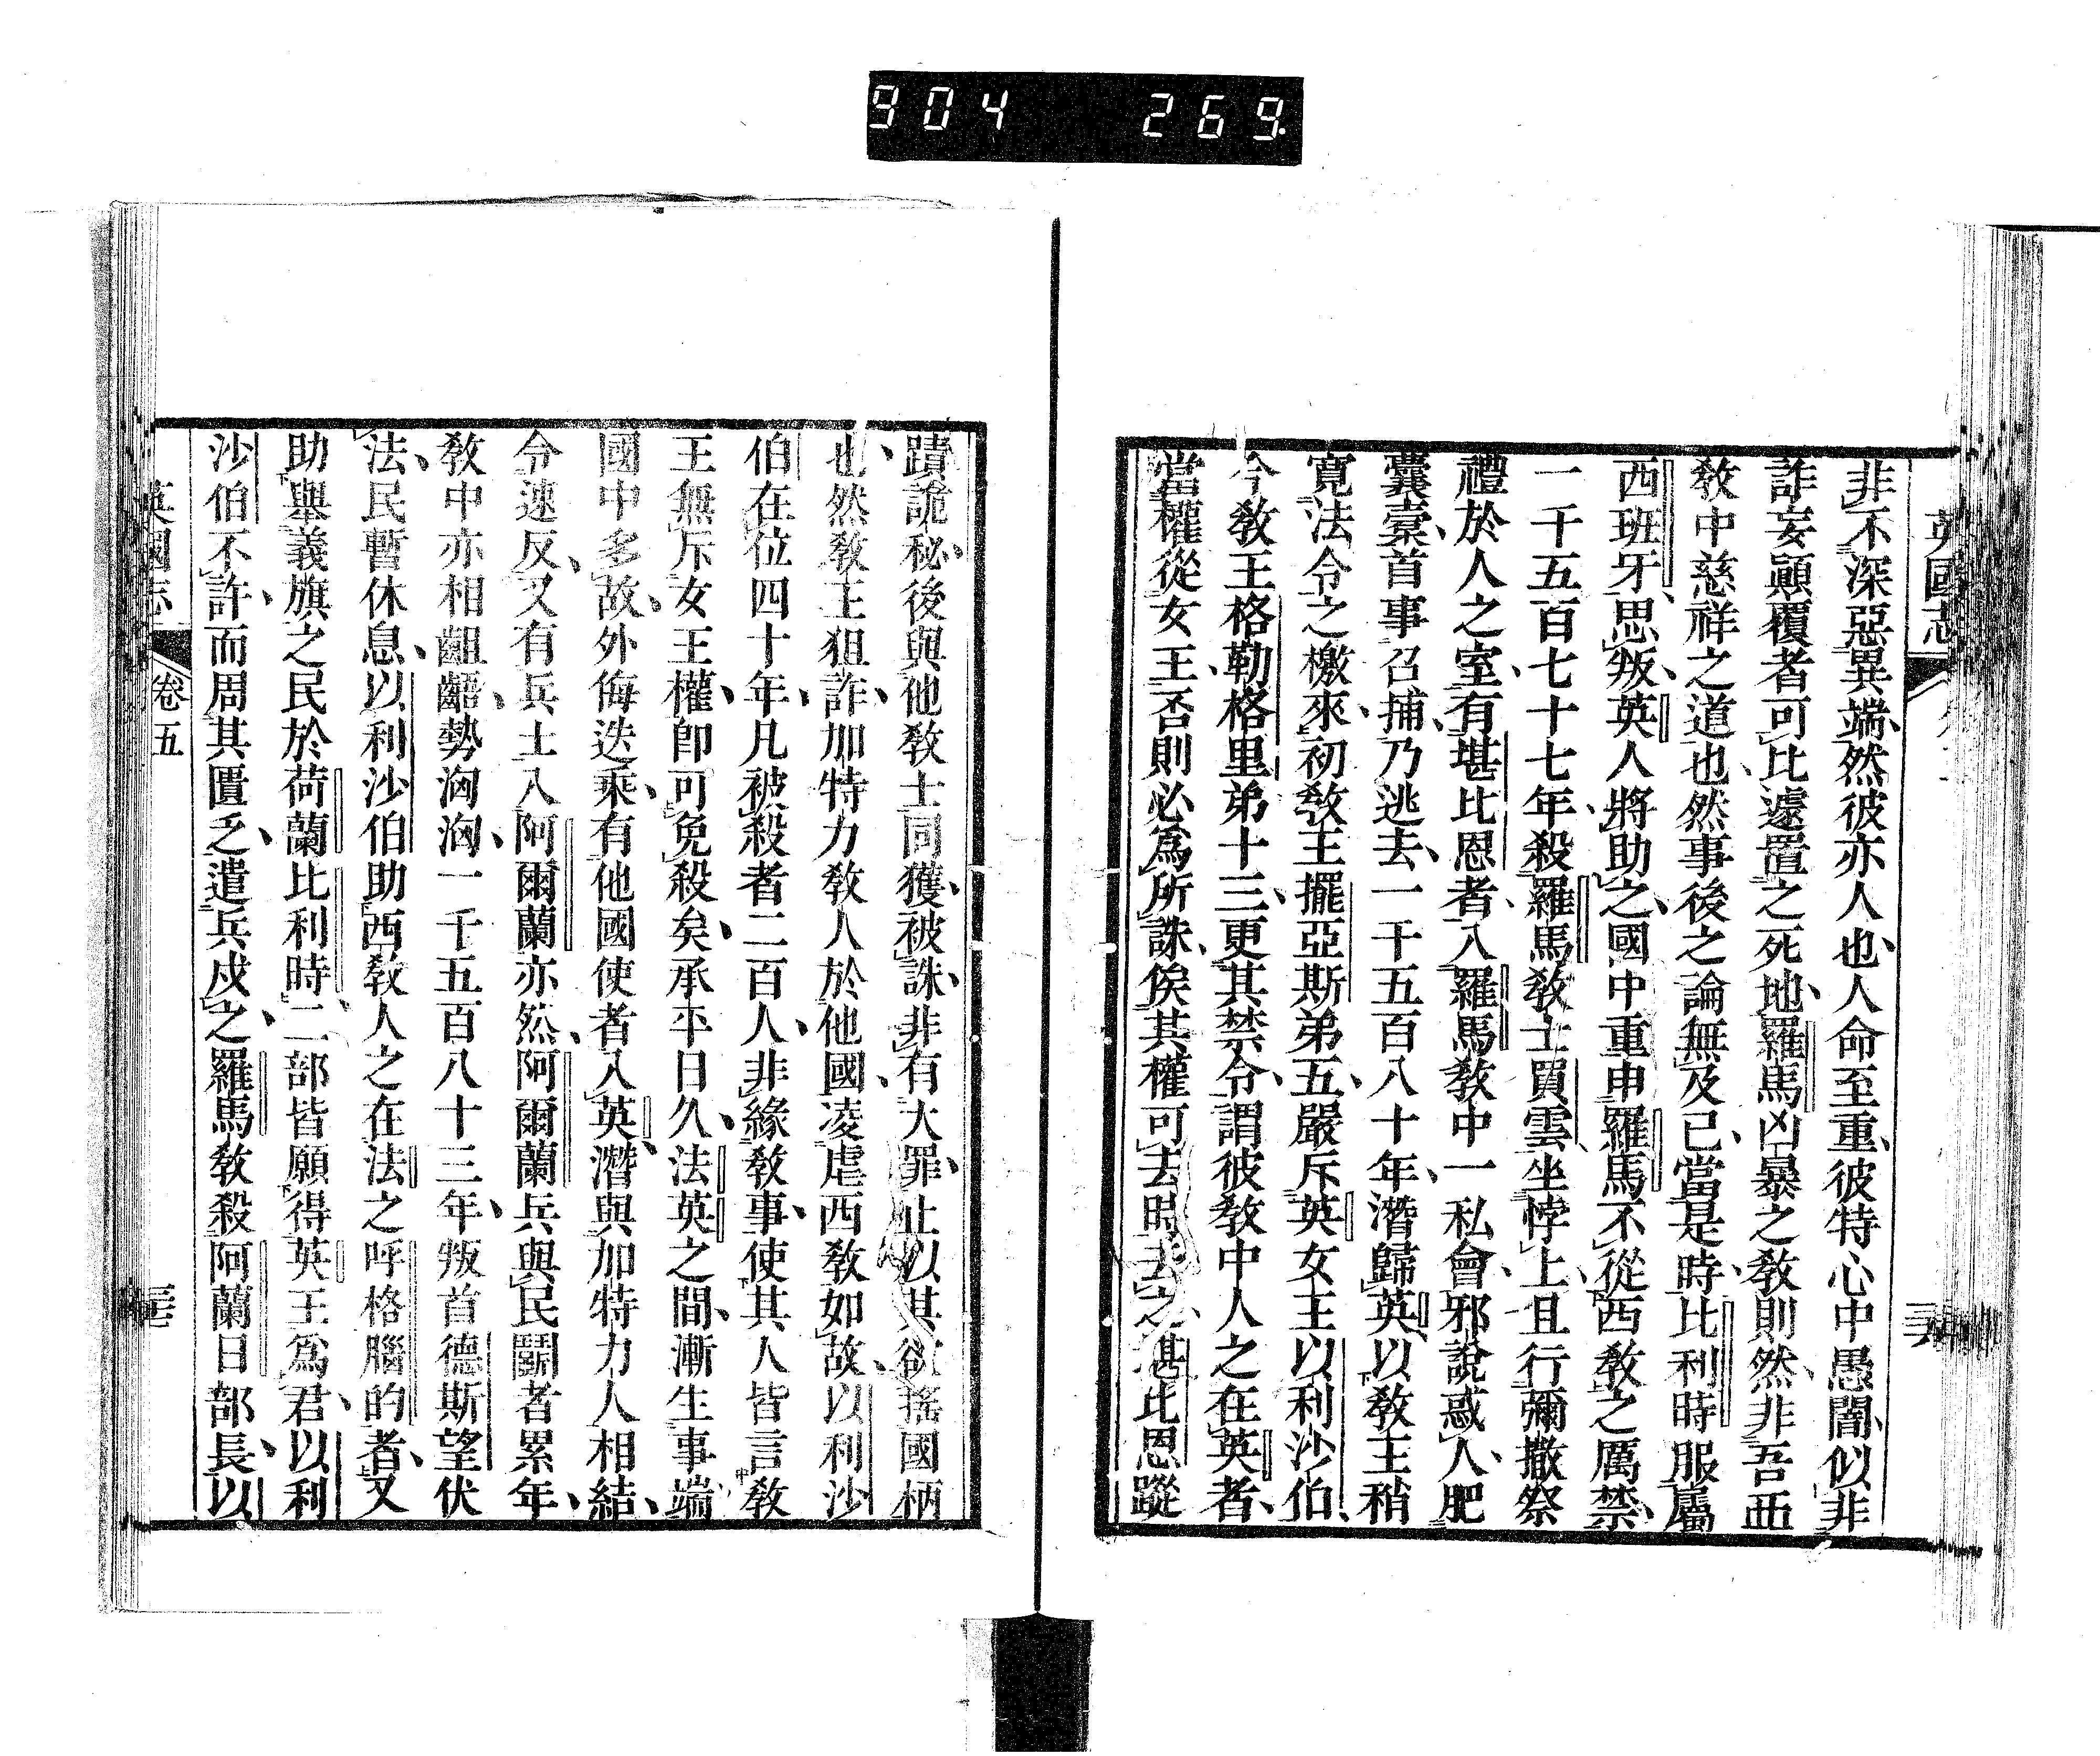 904 269.
英國志
非不深惡異端、然彼亦人也、人命至重、彼特心中愚闇、似非
詐妄顚覆者可比遽置之死地、羅馬凶暴之敎則然、非吾西
敎中慈祥之道也、然事後之論無及已、當是時、比利時服屬
西班牙、思叛、英人將助之、國中重申羅馬不從西敎之厲禁、
一千五百七十七年、殺羅馬敎士買雲、坐悖上、且行彌撒祭
禮於人之室、有堪比恩者、入羅馬敎中一私會、邪說惑人、肥
囊橐、首事召捕、乃逃去、一千五百八十年、潛歸英、以敎王稍
寬法令之檄來、初敎王擺亞斯弟五、嚴斥英女主以利沙伯、
今敎王格勒格里弟十三、更其禁令、謂彼敎中人之在英者、
當權從女王、否則必爲所誅、俟其權可去時去之、堪比恩蹤
蹟詭秘、後與他敎士同獲、被誅、非有大罪、止以其欲搖國柄
也、然敎王狙詐、加特力敎人於他國、凌虐西敎如故、以利沙
伯在位四十年、凡被殺者二百人、非緣敎事、使其人皆言敎
王無斥女王權、卽可免殺矣、承平日久、法英之間、漸生事端、
國中多故、外侮迭乘、有他國使者入英、潛與加特力人相結、
令速反、又有兵士入阿爾蘭亦然、阿爾蘭兵與民鬭者累年、
敎中亦相齟齬、勢洶洶、一千五百八十三年、叛首德斯望伏
法、民暫休息、以利沙伯助西敎人之在法之呼格腦的者、又
助舉義旗之民於荷蘭比利時、二部皆願得英王爲君、以利
沙伯不許、而周其匱乏、遣兵戍之、羅馬敎殺阿蘭日部長、以
英國志 卷五